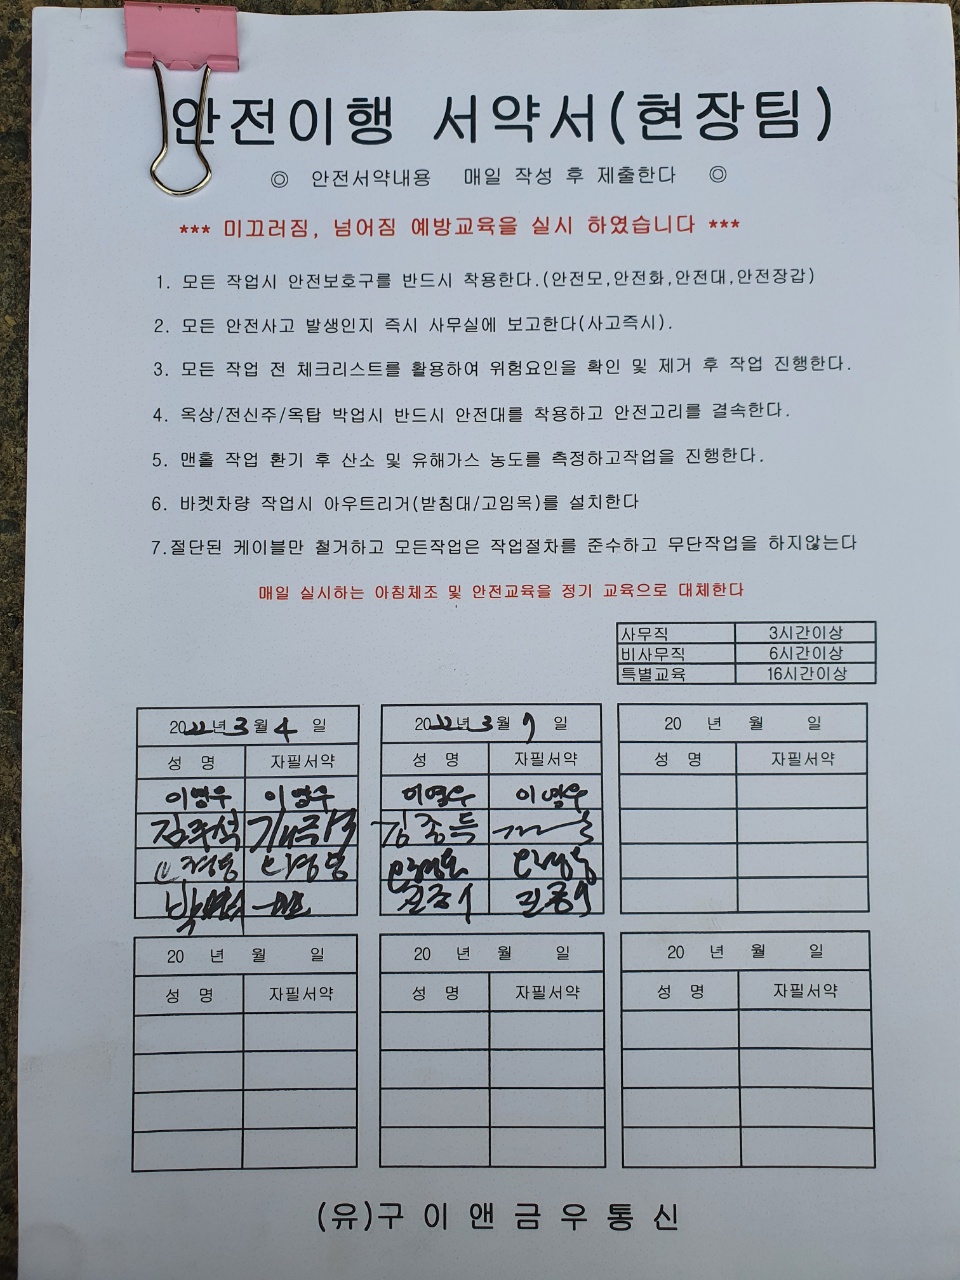 안전이행 서약서(현장팀)
◎ 안전서약내용 매일 작성 후 제출한다 ◎
*** 미끄러짐, 넘어짐 예방교육을 실시 하였습니다 ***
1. 모든 작업시 안전보호구를 반드시 착용한다.(안전모,안전화,안전대,안전장갑)
2. 모든 안전사고 발생인지 즉시 사무실에 보고한다(사고즉시).
3. 모든 작업 전 체크리스트를 활용하여 위험요인을 확인 및 제거 후 작업 진행한다.
4. 옥상/전신주/옥탑 박업시 반드시 안전대를 착용하고 안전고리를 결속한다.
5. 맨홀 작업 환기 후 산소 및 유해가스 농도를 측정하고작업을 진행한다.
6. 바켓차량 작업시 아우트리거(받침대/고임목)를 설치한다
7.절단된 케이블만 철거하고 모든작업은 작업절차를 준수하고 무단작업을 하지않는다
매일 실시하는 아침체조 및 안전교육을 정기 교육으로 대체한다
사무직 3시간이상
비사무직 6시간이상
특별교육 16시간이상
2022년 3월 4일
성 명 자필서약
이영우 이영우
김주석
2022년 3월 7일
성 명 자필서약
이영우 이영우
김종득
20 년 월 일
성 명 자필서약
20 년 월 일
성 명 자필서약
20 년 월 일
성 명 자필서약
20 년 월 일
성 명 자필서약
(유)구이앤금우통신